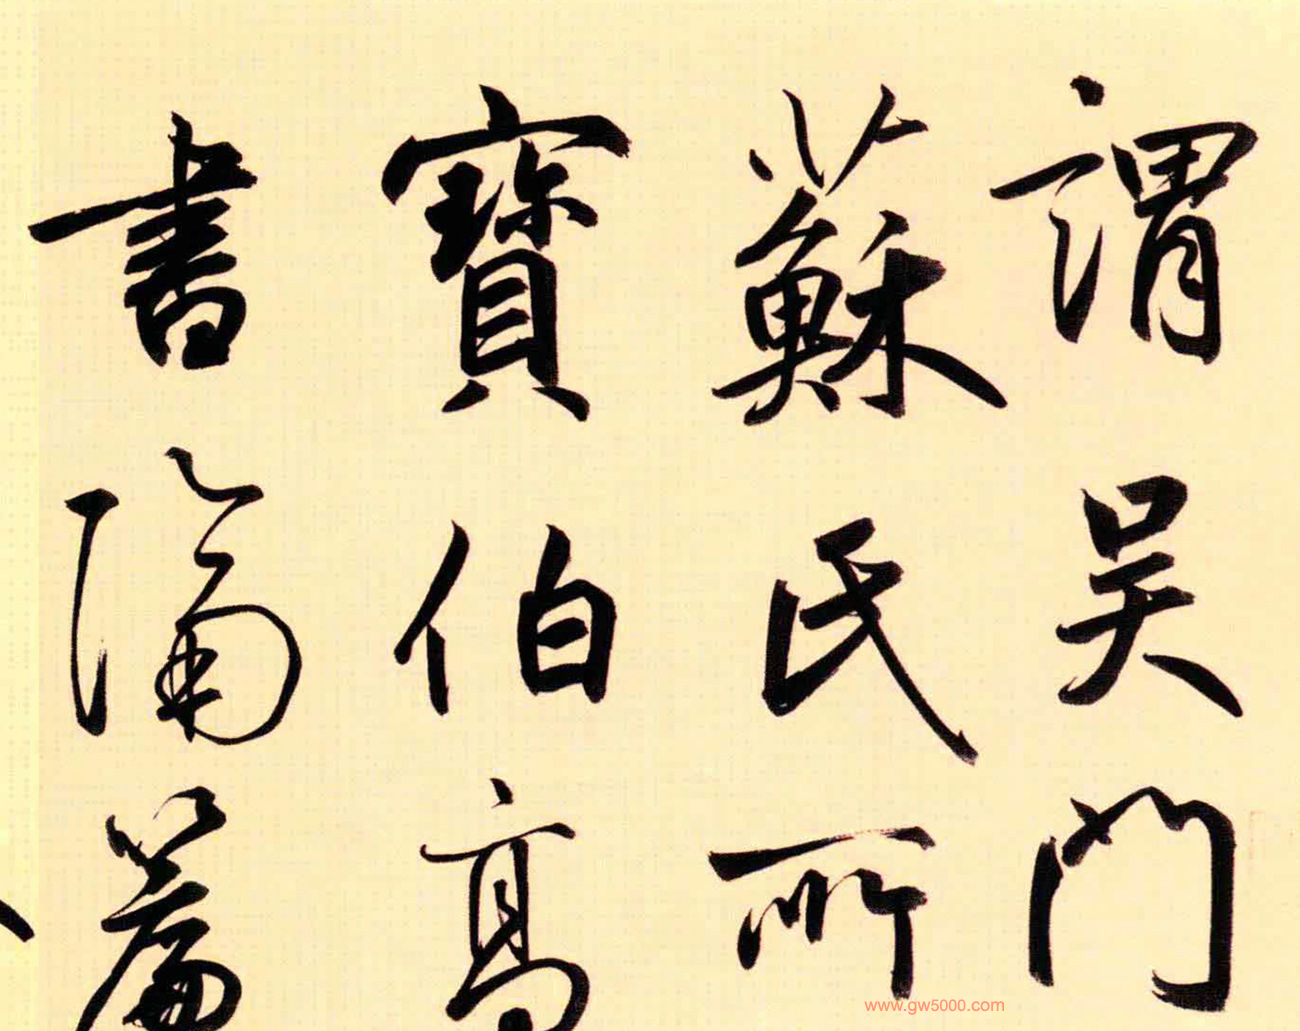 謂吳門
蘇氏所
寶伯高
書隔篇
www.gw5000.com